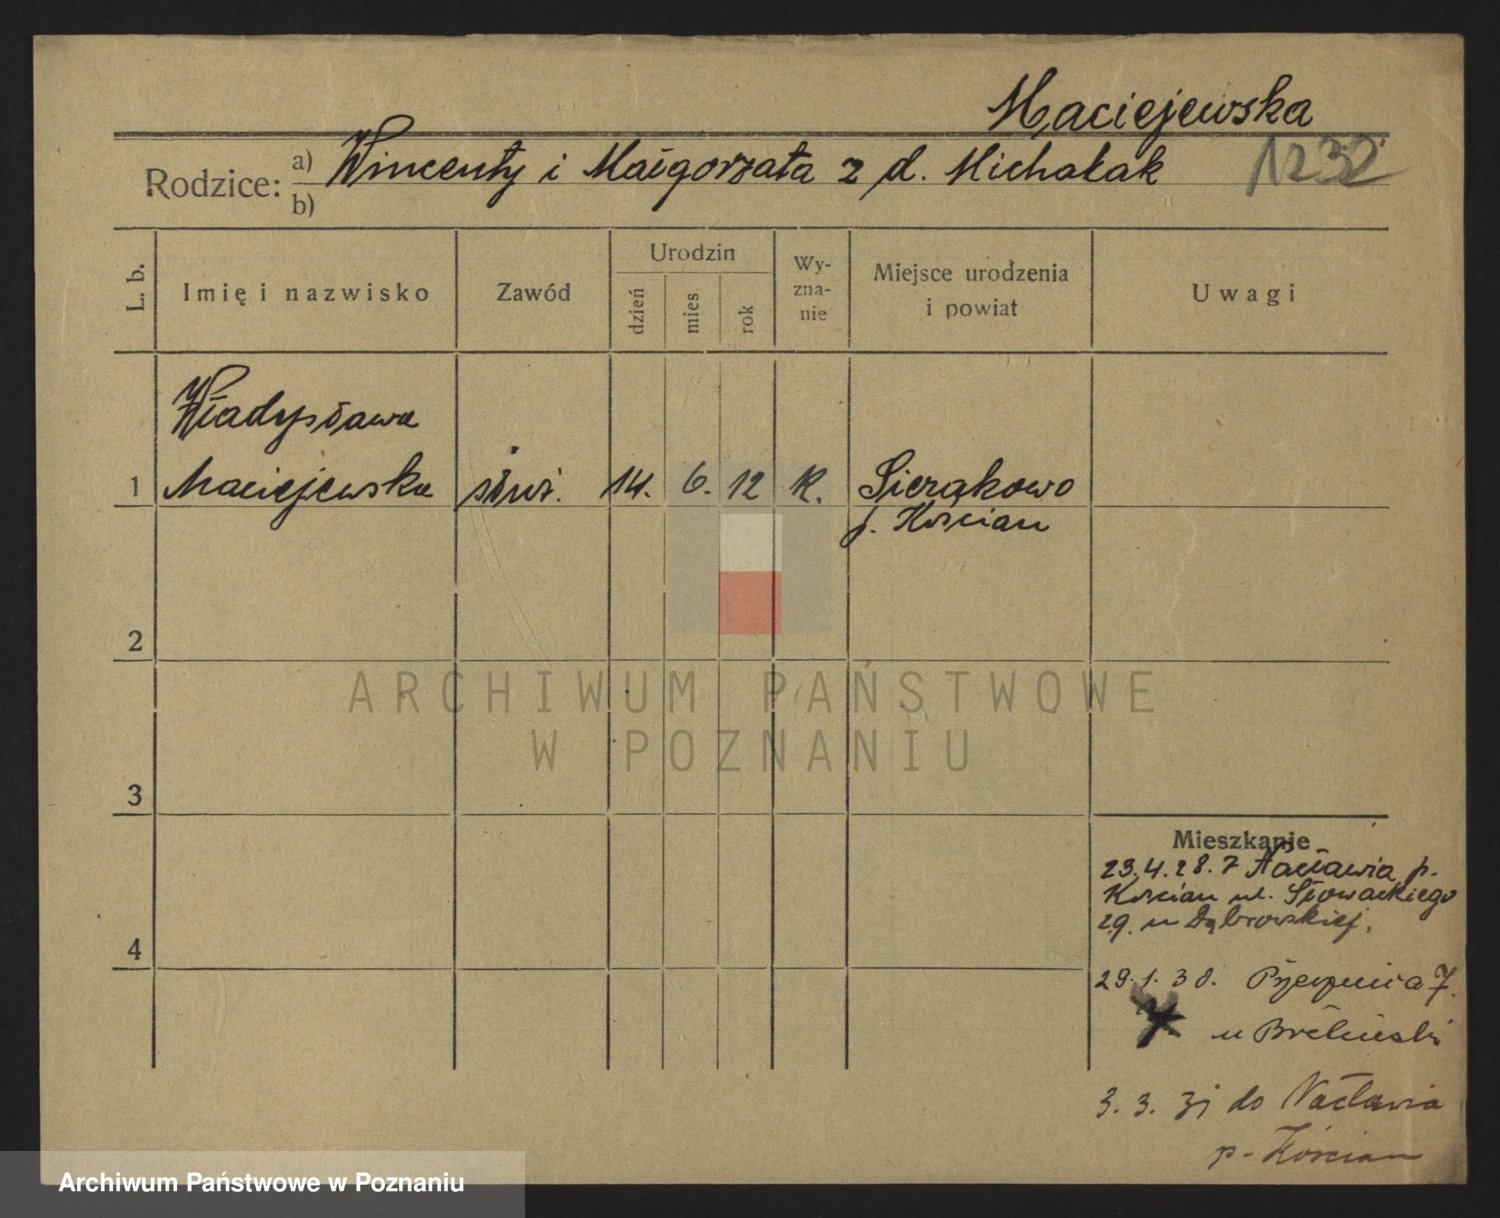 Maciejewska
Rodzice: a) Wincenty i Małgorzata z d. Michalak 1232
b)
L. b. Imię i nazwisko Zawód Urodzin dzień mies rok Wy-zna-nie Miejsce urodzenia i powiat Uwagi
Władysława
1 Maciejewska służ. 14. 6. 12 K. Sierakowo
p. Kościan
2
ARCHIWUM PAŃSTWOWE
W POZNANIU
3
Mieszkanie
23.4.28. z Nacławia p.
Kościan ul. Słowackiego
29. u Dąbrowskiej.
4
29.1.30. 7.
u
3. 3. 31 do Nacławia
p. Kościan
Archiwum Państwowe w Poznaniu